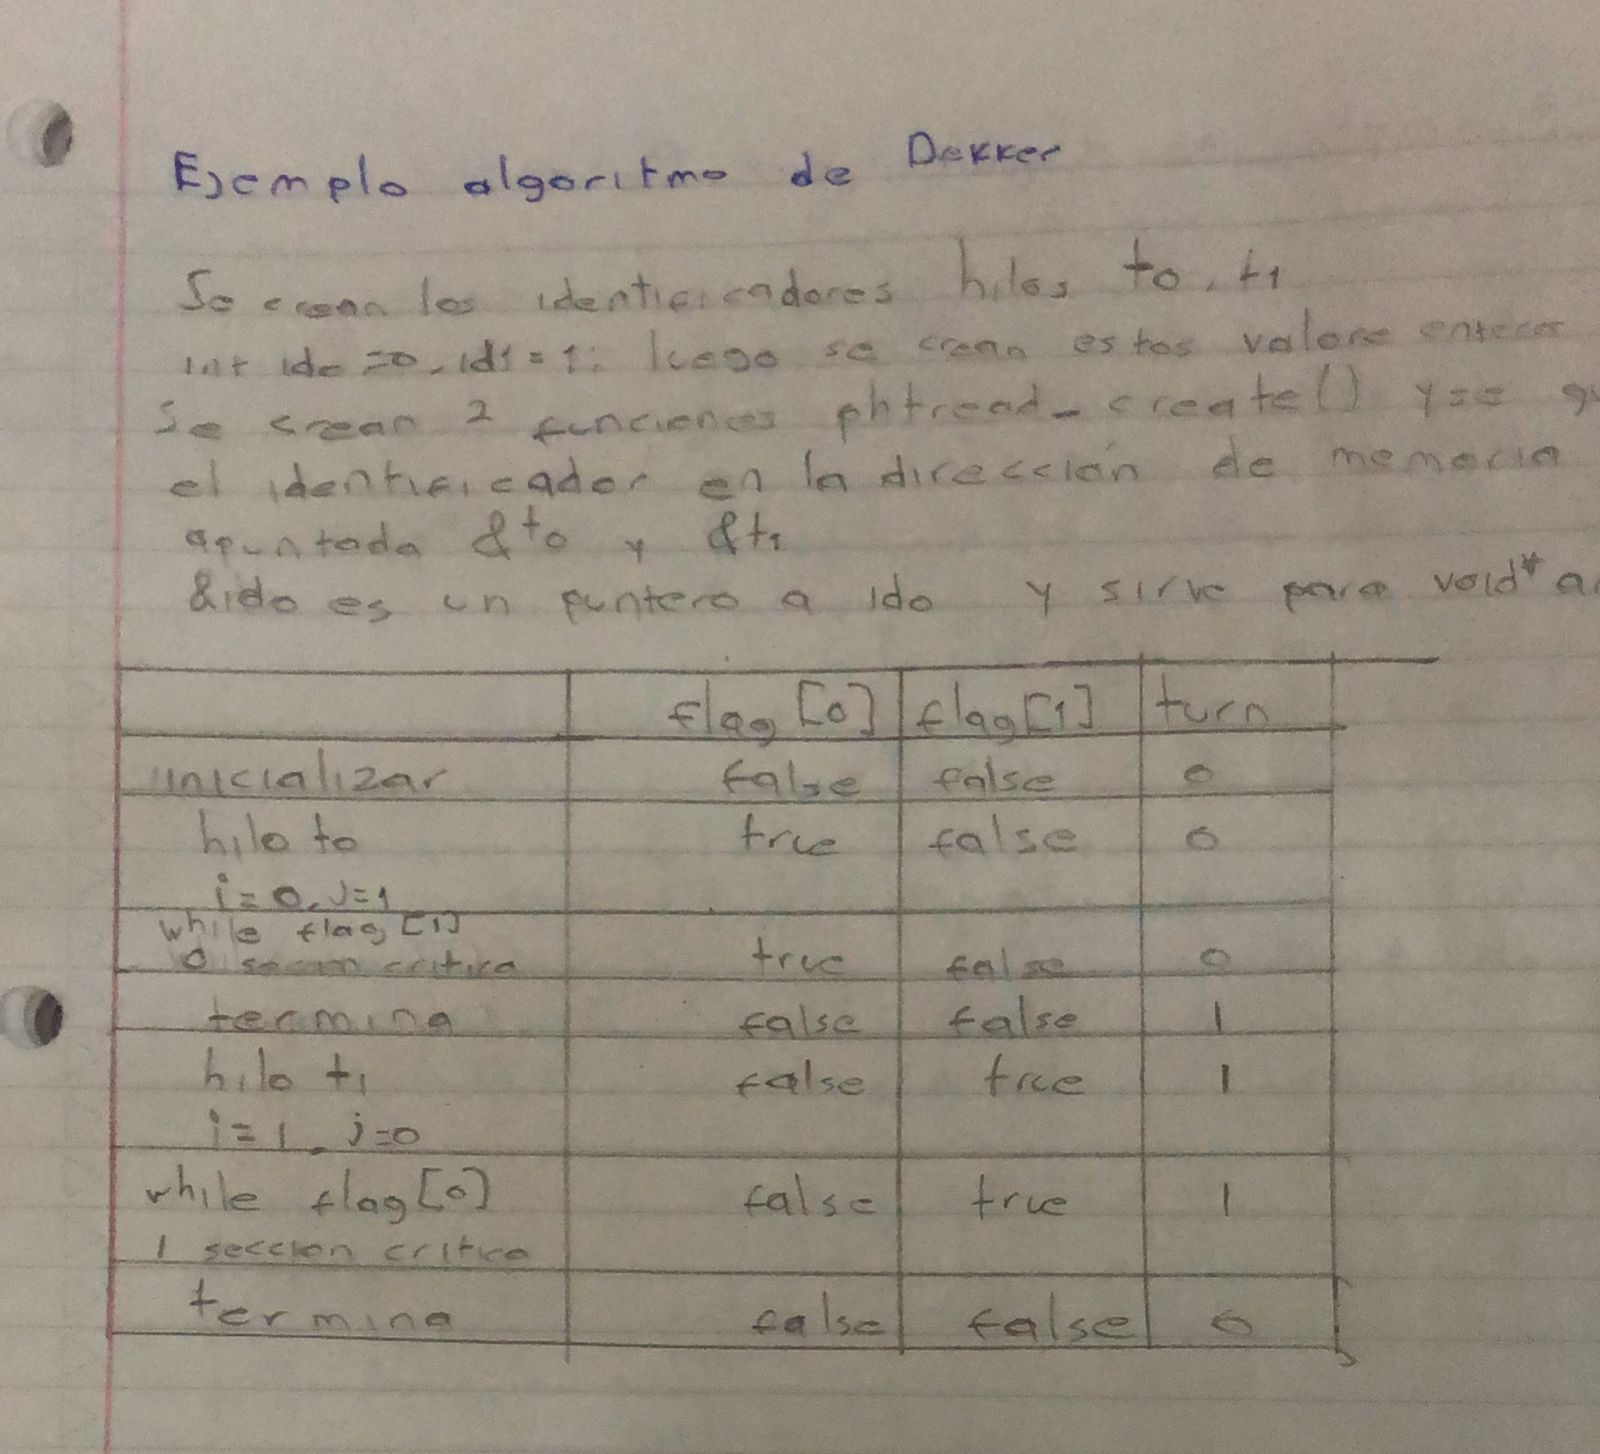 Ejemplo algoritmo de Dekker
Se crean los identificadores hilos t0, t1
int id0 =0, id1 = 1; luego se crean estos valore enteros
Se crean 2 funciones phtread_create() y se
el identificador en la dirección de memoria
apuntada &t0 y &t1
&id0 es un puntero a id0 y sirve para void*
flag [0] flag[1] turn
inicializar false false 0
hilo t0 true false 0
i=0, J=1
while flag[1]
0 seccion critica true false 0
termina false false 1
hilo t1 false true 1
i=1, j=0
while flag[0] false true 1
1 seccion critica
termina false false 0